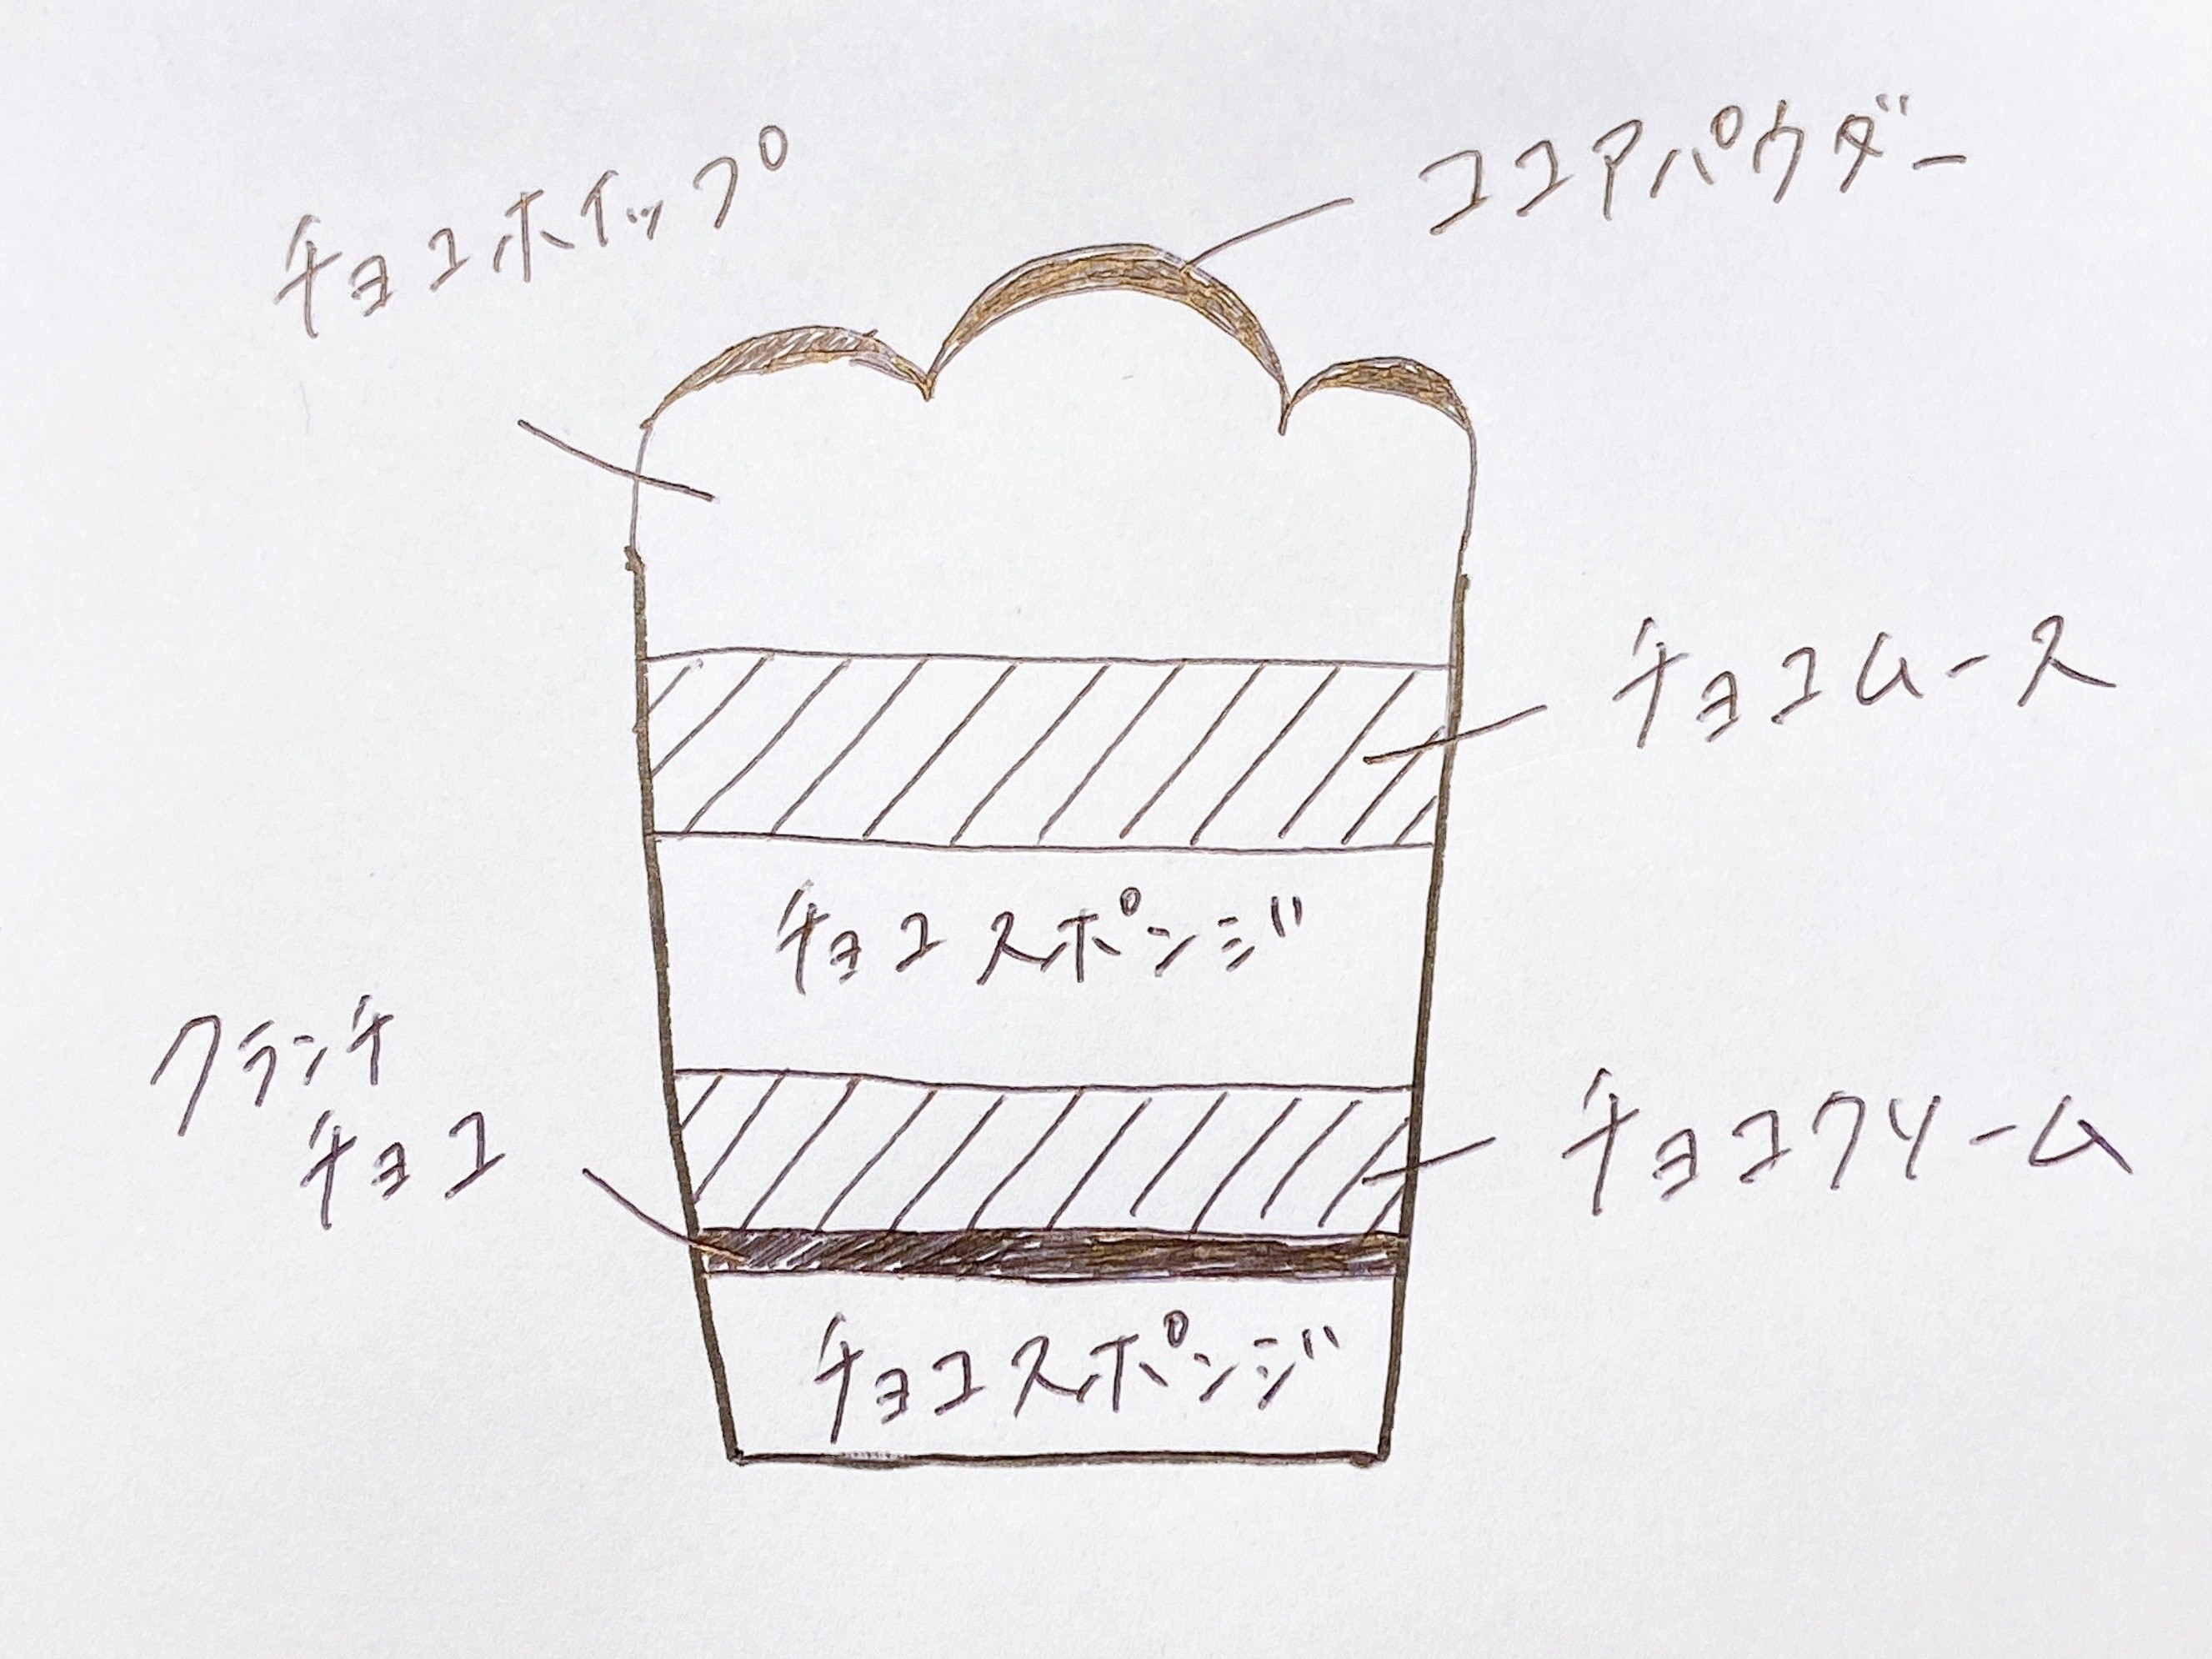 チョコホイップ
ココアパウダー
チョコムース
チョコスポンジ
クランチ
チョコ
チョコクリーム
チョコスポンジ